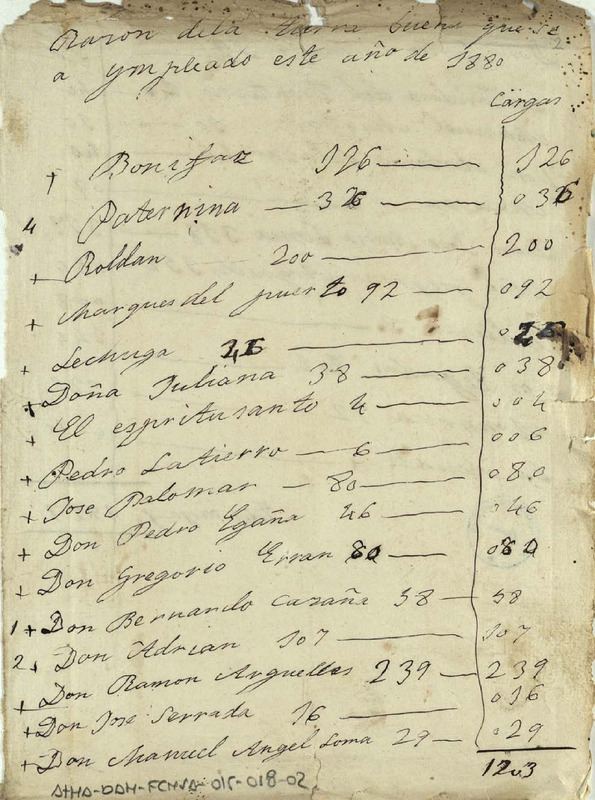 Razon dela tierra buena que se
a ympleado este año de 1880
Cargas
+ Bonifaz 126 — 126
4 Paternina — 36 — 036
+ Roldan 200 — 200
+ Marques del puerto 92 — 092
+ Lechuga
+ Doña Juliana 38 — 038
+ El espiritu santo 4 — 004
+ Pedro Latierro — 6 — 006
+ Jose Palomar — 80 — 080
+ Don Pedro Egaña 46 — 046
+ Don Gregorio Erran 80 — 080
1 + Don Bernardo cazaña 58 — 58
2 + Don Adrian 107 — 107
+ Don Ramon Arguelles 239 — 239
+ Don Jose Serrada 16 — 016
+ Don Manuel Angel Loma 29 — 029
1203
ATHA-DAH-FCHVA-015-018-02